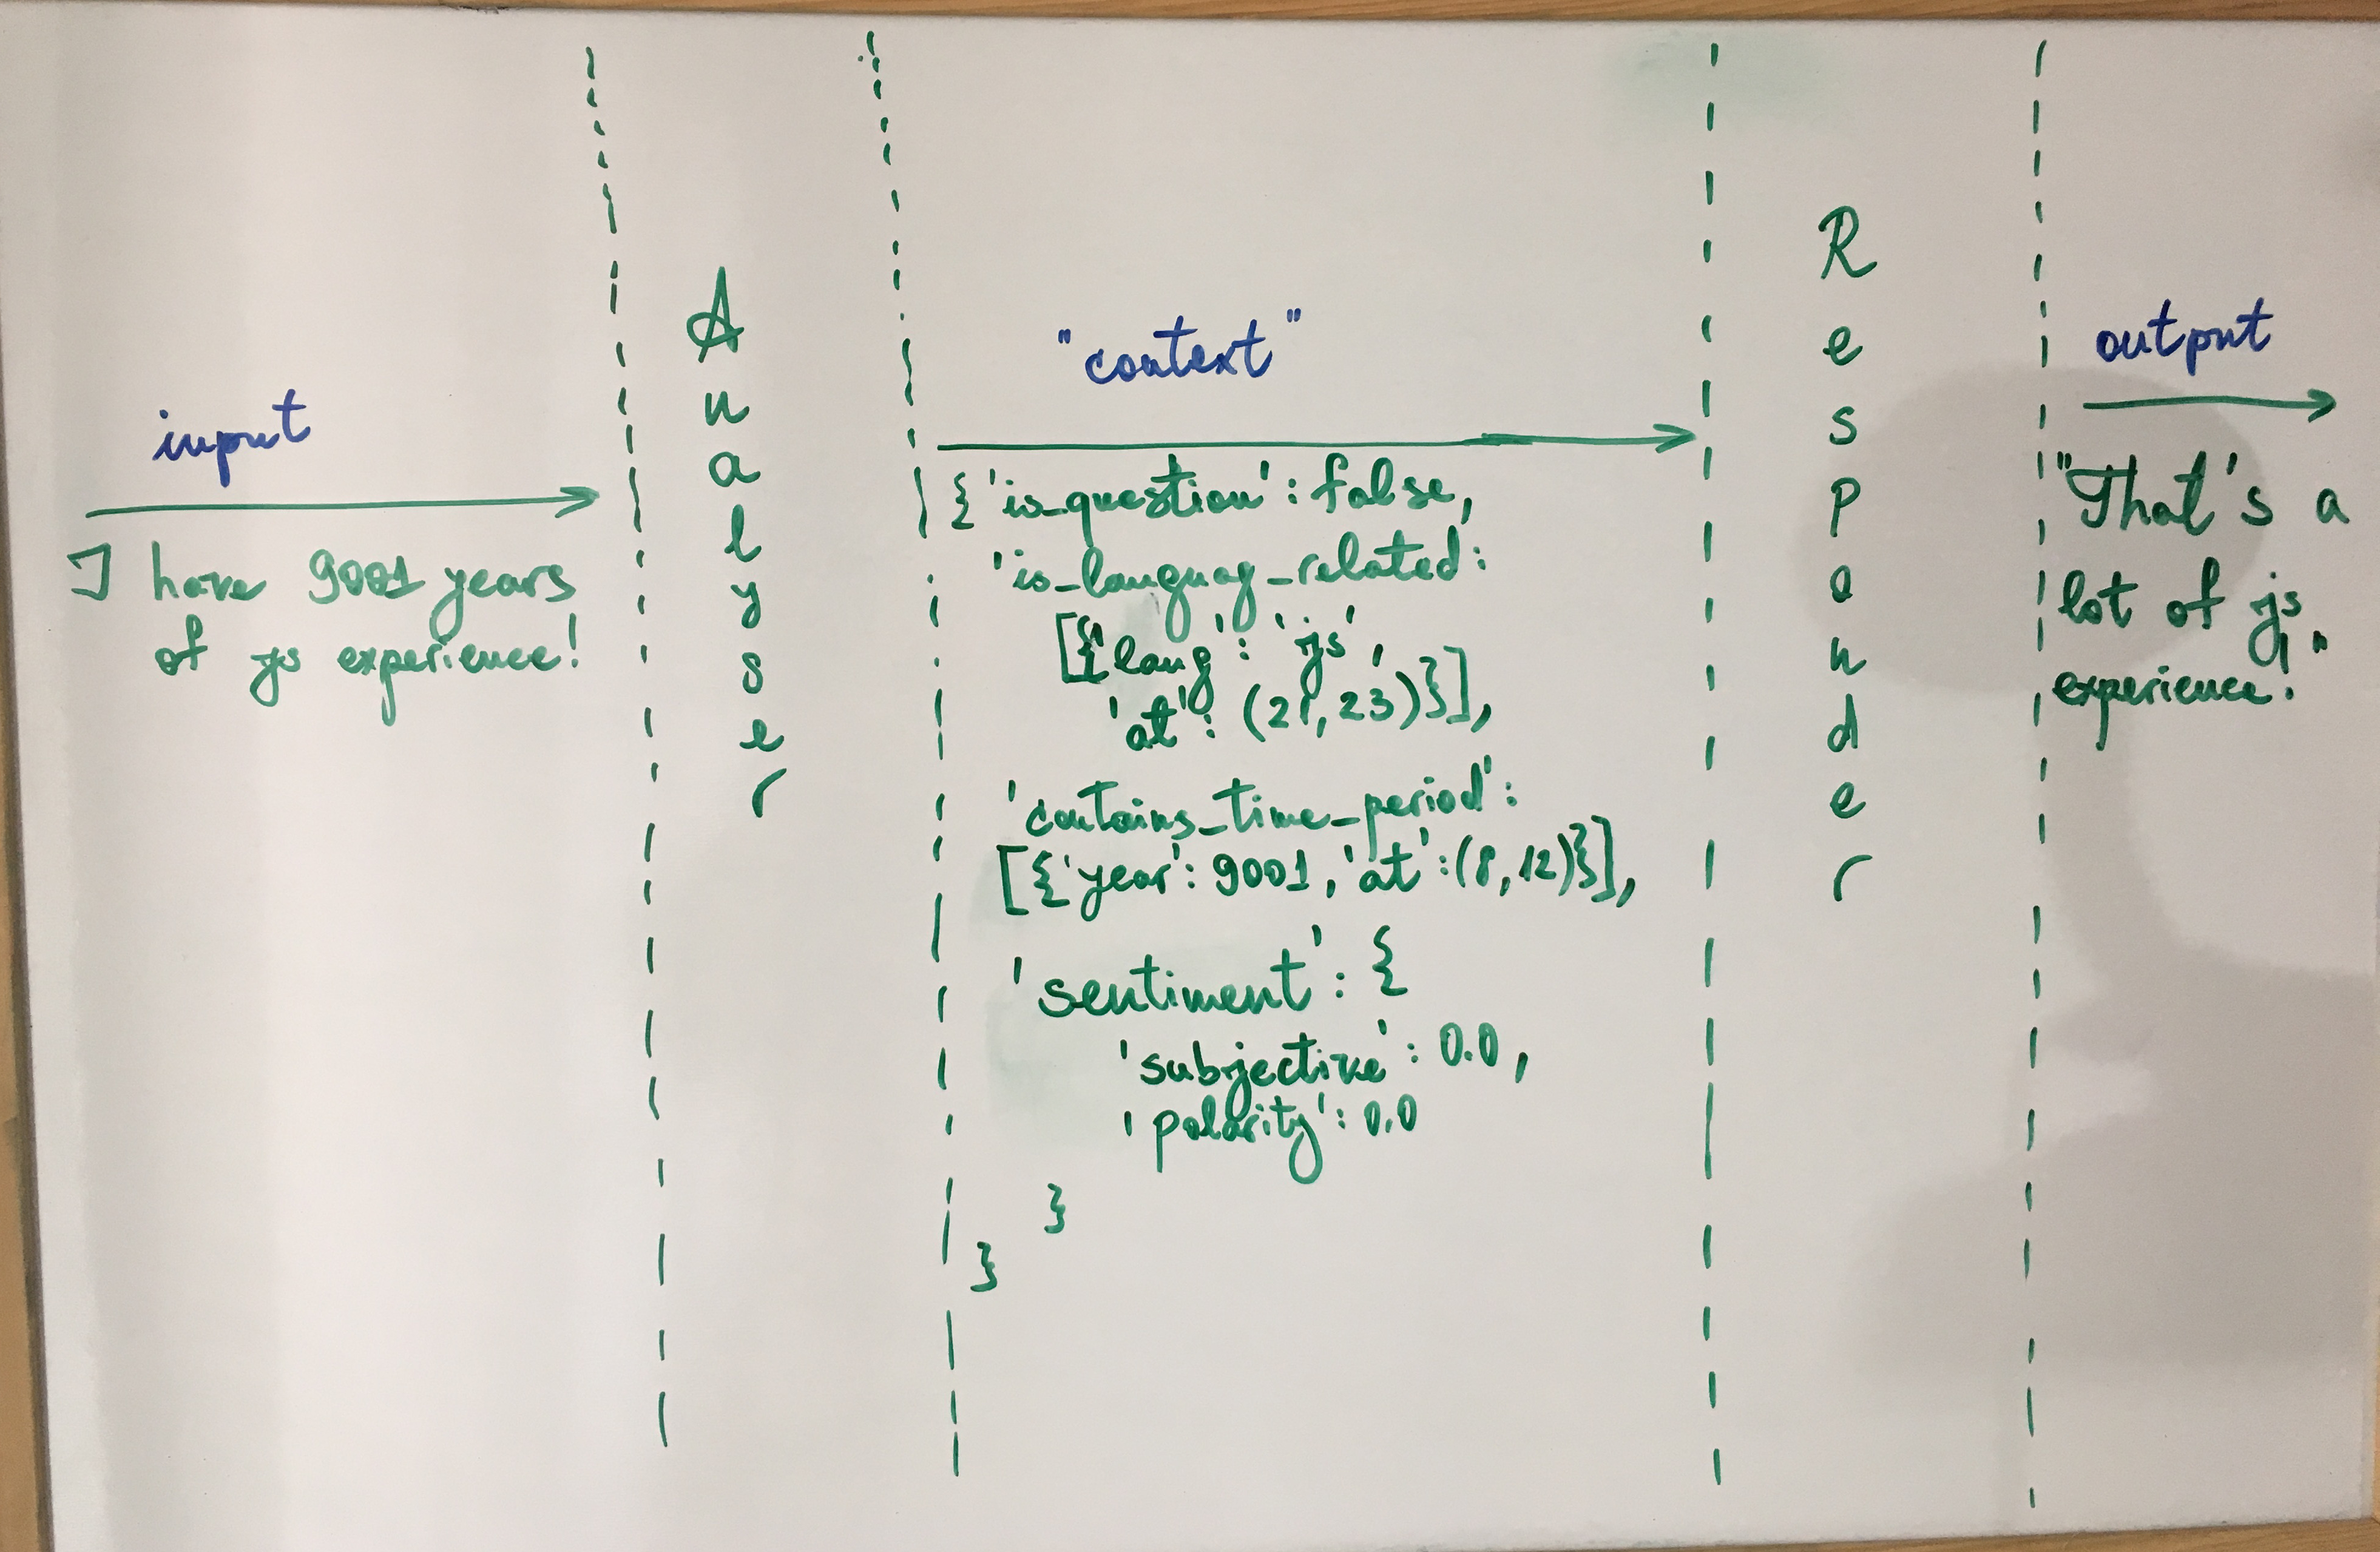 input
I have 9001 years
of js experience!
Analyser
"context"
{'is_question': false,
'is_languag_related:
[{'lang': 'js',
'at': (21,23)}],
'contains_time_period':
[{'year': 9001, 'at':(8,12)}],
'sentiment': {
'subjective': 0.0,
'polarity': 0.0
}
}
Responder
output
"That's a
lot of js
experience!"